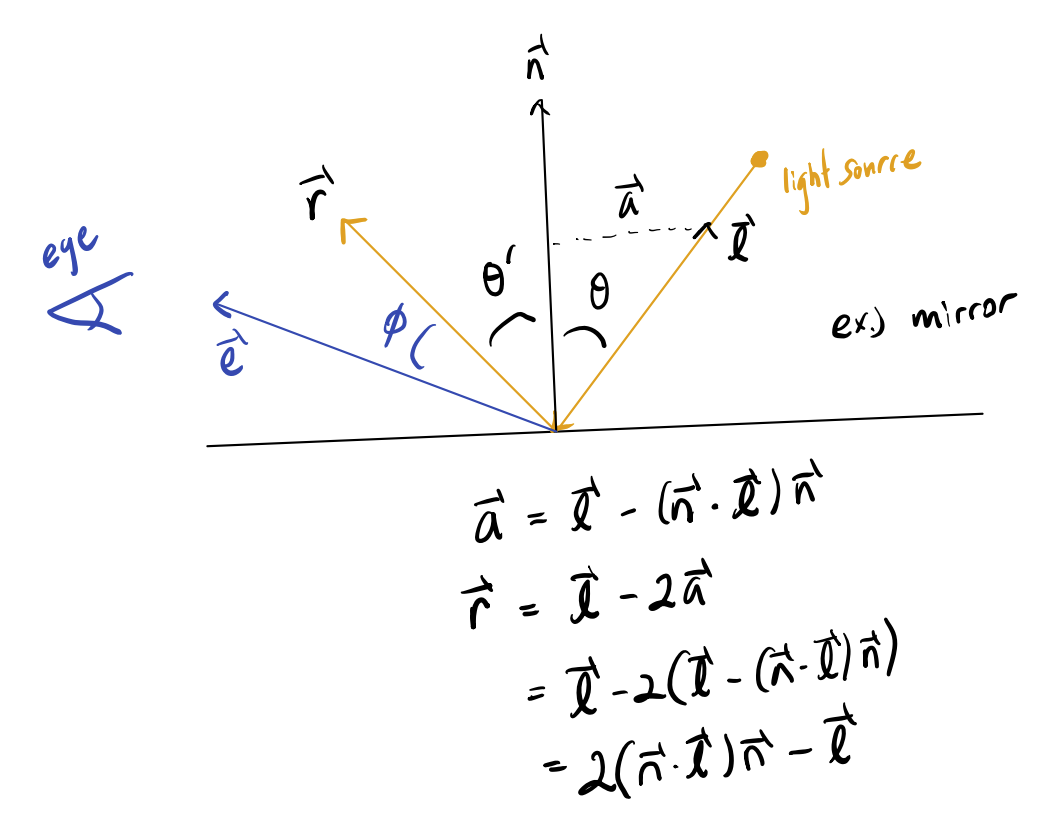 n⃗
light source
r⃗
a⃗
eye
l⃗
θ'
θ
ex.) mirror
ϕ
e⃗
a⃗ = l⃗ - (n⃗ · l⃗) n⃗
r⃗ = l⃗ - 2a⃗
= l⃗ - 2(l⃗ - (n⃗ · l⃗) n⃗)
= 2(n⃗ · l⃗) n⃗ - l⃗